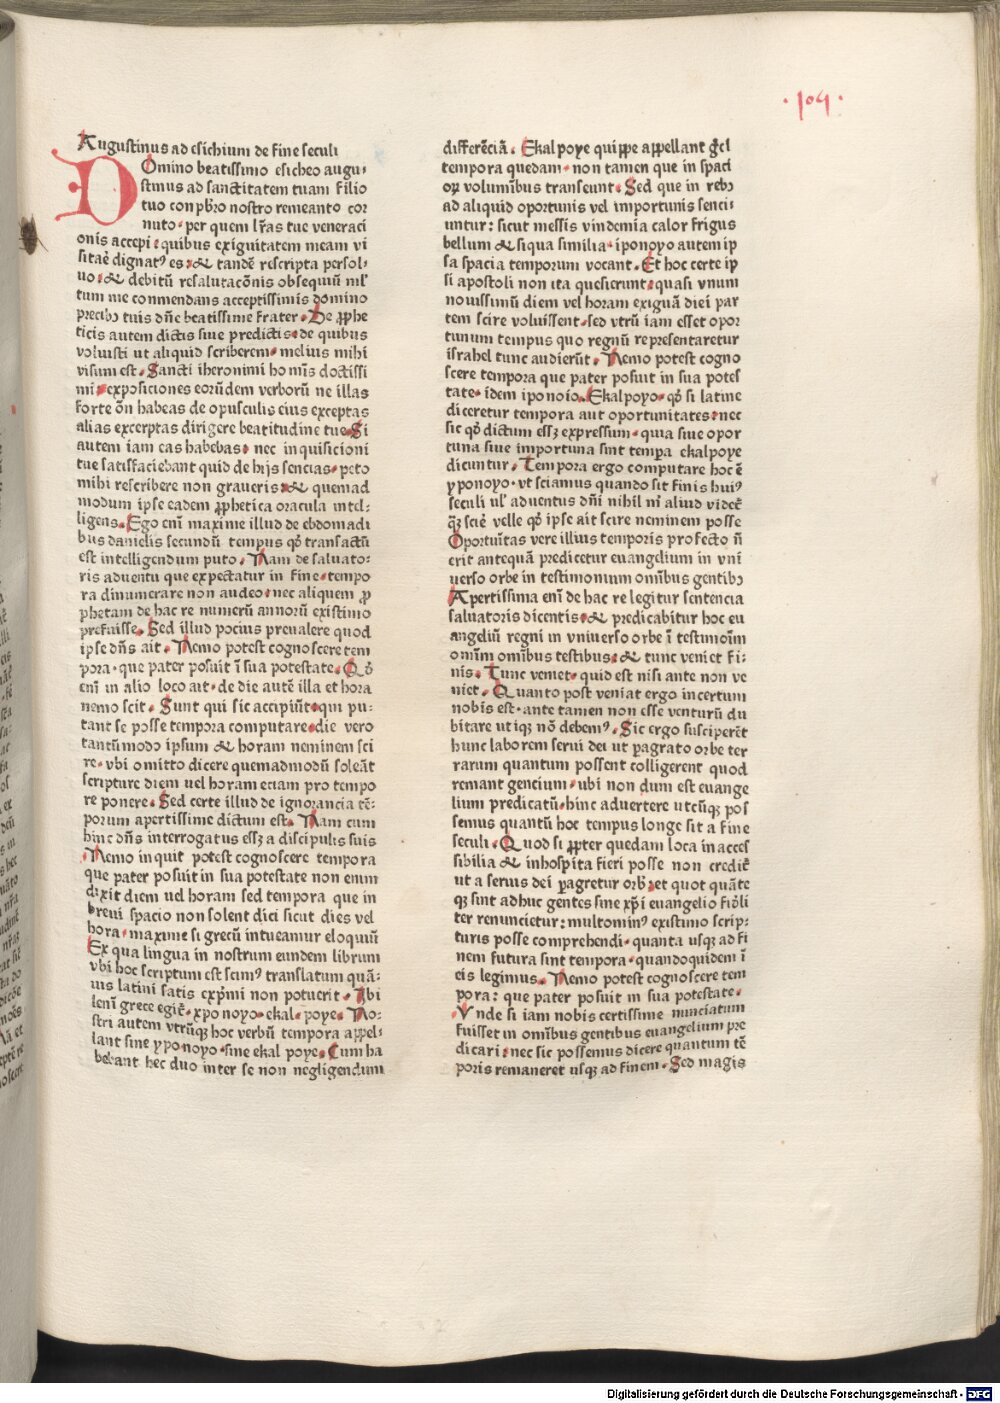 ·104·
Augustinus ad esichium de fine seculi
Domino beatissimo esicheo augu⸗
stinus ad sanctitatem tuam filio
tuo con pb̄ro nostro remeanto cor
nuto· per quem lr̄as tue veneraci
onis accepi: quibus exiguitatem meam vi
sitaē dignatꝰ es: & tandē rescripta persol⸗
uo: & debitū resalutacōnis obsequiū
tum me conmendans acceptissimis domino
precibꝫ tuis dn̄e beatissime frater· De ꝓphe
ticis autem dictis siue predictis· de quibus
voluisti ut aliquid scriberem· melius mihi
visum est· Sancti iheronimi hominis doctissi
mi· exposiciones eorūdem verborū ne illas
forte ōn habeas de opusculis eius exceptas
alias excerptas dirigere beatitudine tue· Si
autem iam eas habebas· nec inquisicioni
tue satisfaciebant quid de hijs sencias· peto
mihi rescribere non graueris· & quemad
modum ipse eadem ꝓphetica oracula intel⸗
ligens· Ego enī maxime illud de ebdomadi
bus danielis secundū tempus qd̄ transactū
est intelligendum puto· Nam de saluato⸗
ris aduentu que expectatur in fine· tempo
ra dinumerare non audeo· nec aliquem ꝓ
phetam de hac re numerū annorū existimo
prefuisse· Sed illud pocius preualere quod
ipse dn̄s ait· Nemo potest cognoscere tem
pora· que pater posuit ī sua potestate· Qd̄
enī in alio loco ait· de die autē illa et hora
nemo scit· Sunt qui sic accipiūt· qui pu⸗
tant se posse tempora computare· die vero
tantūmodo ipsum & horam neminem sci
re· vbi omitto dicere quemadmodū soleāt
scripture diem uel horam eciam pro tempo
re ponere· Sed certe illud de ignorancia tē⸗
porum apertissime dictum est· Nam cum
hinc dn̄s interrogatus essꝫ a discipulis suis
Nemo inquit potest cognoscere tempora
que pater posuit in sua potestate non enim
dixit diem uel horam sed tempora que in
breui spacio non solent dici sicut dies vel
hora· maxime si grecū intueamur eloquiū
Ex qua lingua in nostrum eundem librum
vbi hoc scriptum est scimꝰ translatum quā⸗
uis latini satis exp̄mi non potuerit· Ibi
lenī grece egit̄· xponoyo· ekal·poye· No⸗
stri autem vtrūqꝫ hoc verbū tempora appel⸗
lant sine yponoyo· sine ekal poye· Cum ha
beant hec duo inter se non negligendum
differēciā· Ekalpoye quippe appellant
tempora quedam· non tamen que in spaci
oꝝ voluminibus transeunt· Sed que in rebꝫ
ad aliquid oportunis vel importunis senci⸗
untur: sicut messis vindemia calor frigus
bellum & siqua similia· iponoyo autem ip
sa spacia temporum vocant· Et hoc certe ip
si apostoli non ita quesierunt· quasi vnum
nouissimū diem vel horam exiguā diei par
tem scire voluissent· sed vtrū iam esset opor
tunum tempus quo regnū representaretur
israhel tunc audierūt· Nemo potest cogno
scere tempora que pater posuit in sua potes
tate· idem iponoio· Ekalpoyo· qd̄ si latine
diceretur tempora aut oportunitates· nec
sic qd̄ dictum essꝫ expressum· quia siue opor
tuna siue importuna sint temp̄a ekalpoye
dicuntur· Tempora ergo computare hoc ē
yponoyo· vt sciamus quando sit finis huiꝰ
seculi ul' aduentus dn̄i nihil m̄ aliud videt̄
qꝫ scire velle qd̄ ipse ait scire neminem posse
Oportuītas vere illius temporis profecto ñ
erit antequā predicetur euangelium in vni
uerso orbe in testimonium omībus gentibꝫ
Apertissima enī de hac re legitur sentencia
saluatoris dicentis· & predicabitur hoc eu
angeliū regni in vniuerso orbe ī testimoīm
omīm omībus testibus· & tunc veniet fi⸗
nis· Tunc veniet· quid est nisi ante non ve
niet· Quanto post veniat ergo incertum
nobis est· ante tamen non esse venturū du
bitare utiqꝫ nō debemꝰ· Sic ergo susciperēt
hunc laborem serui dei ut ꝑagrato orbe ter
rarum quantum possent colligerent quod
remant gencium· ubi non dum est euange
lium predicatū· hinc aduertere utcūqꝫ pos
semus quantū hoc tempus longe sit a fine
seculi· Quod si ꝓpter quedam loca inacces
sibilia & inhospita fieri posse non credit̄
ut a seruis dei ꝑagretur orbꝫ et quot quāte
qꝫ sint adhuc gentes sine xp̄i euangelio fid̄li
ter renuncietur: multominꝰ existimo scrip⸗
turis posse comprehendi· quanta usqꝫ ad fi
nem futura sint tempora· quandoquidem ī
eis legimus· Nemo potest cognoscere tem
pora: que pater posuit in sua potestate·
Vnde si iam nobis certissime nunciatum
fuisset in omībus gentibus euangelium pre
dicari: nec sic possemus dicere quantum tē
poris remaneret usqꝫ ad finem· Sed magis
Digitalisierung gefördert durch die Deutsche Forschungsgemeinschaft - DFG